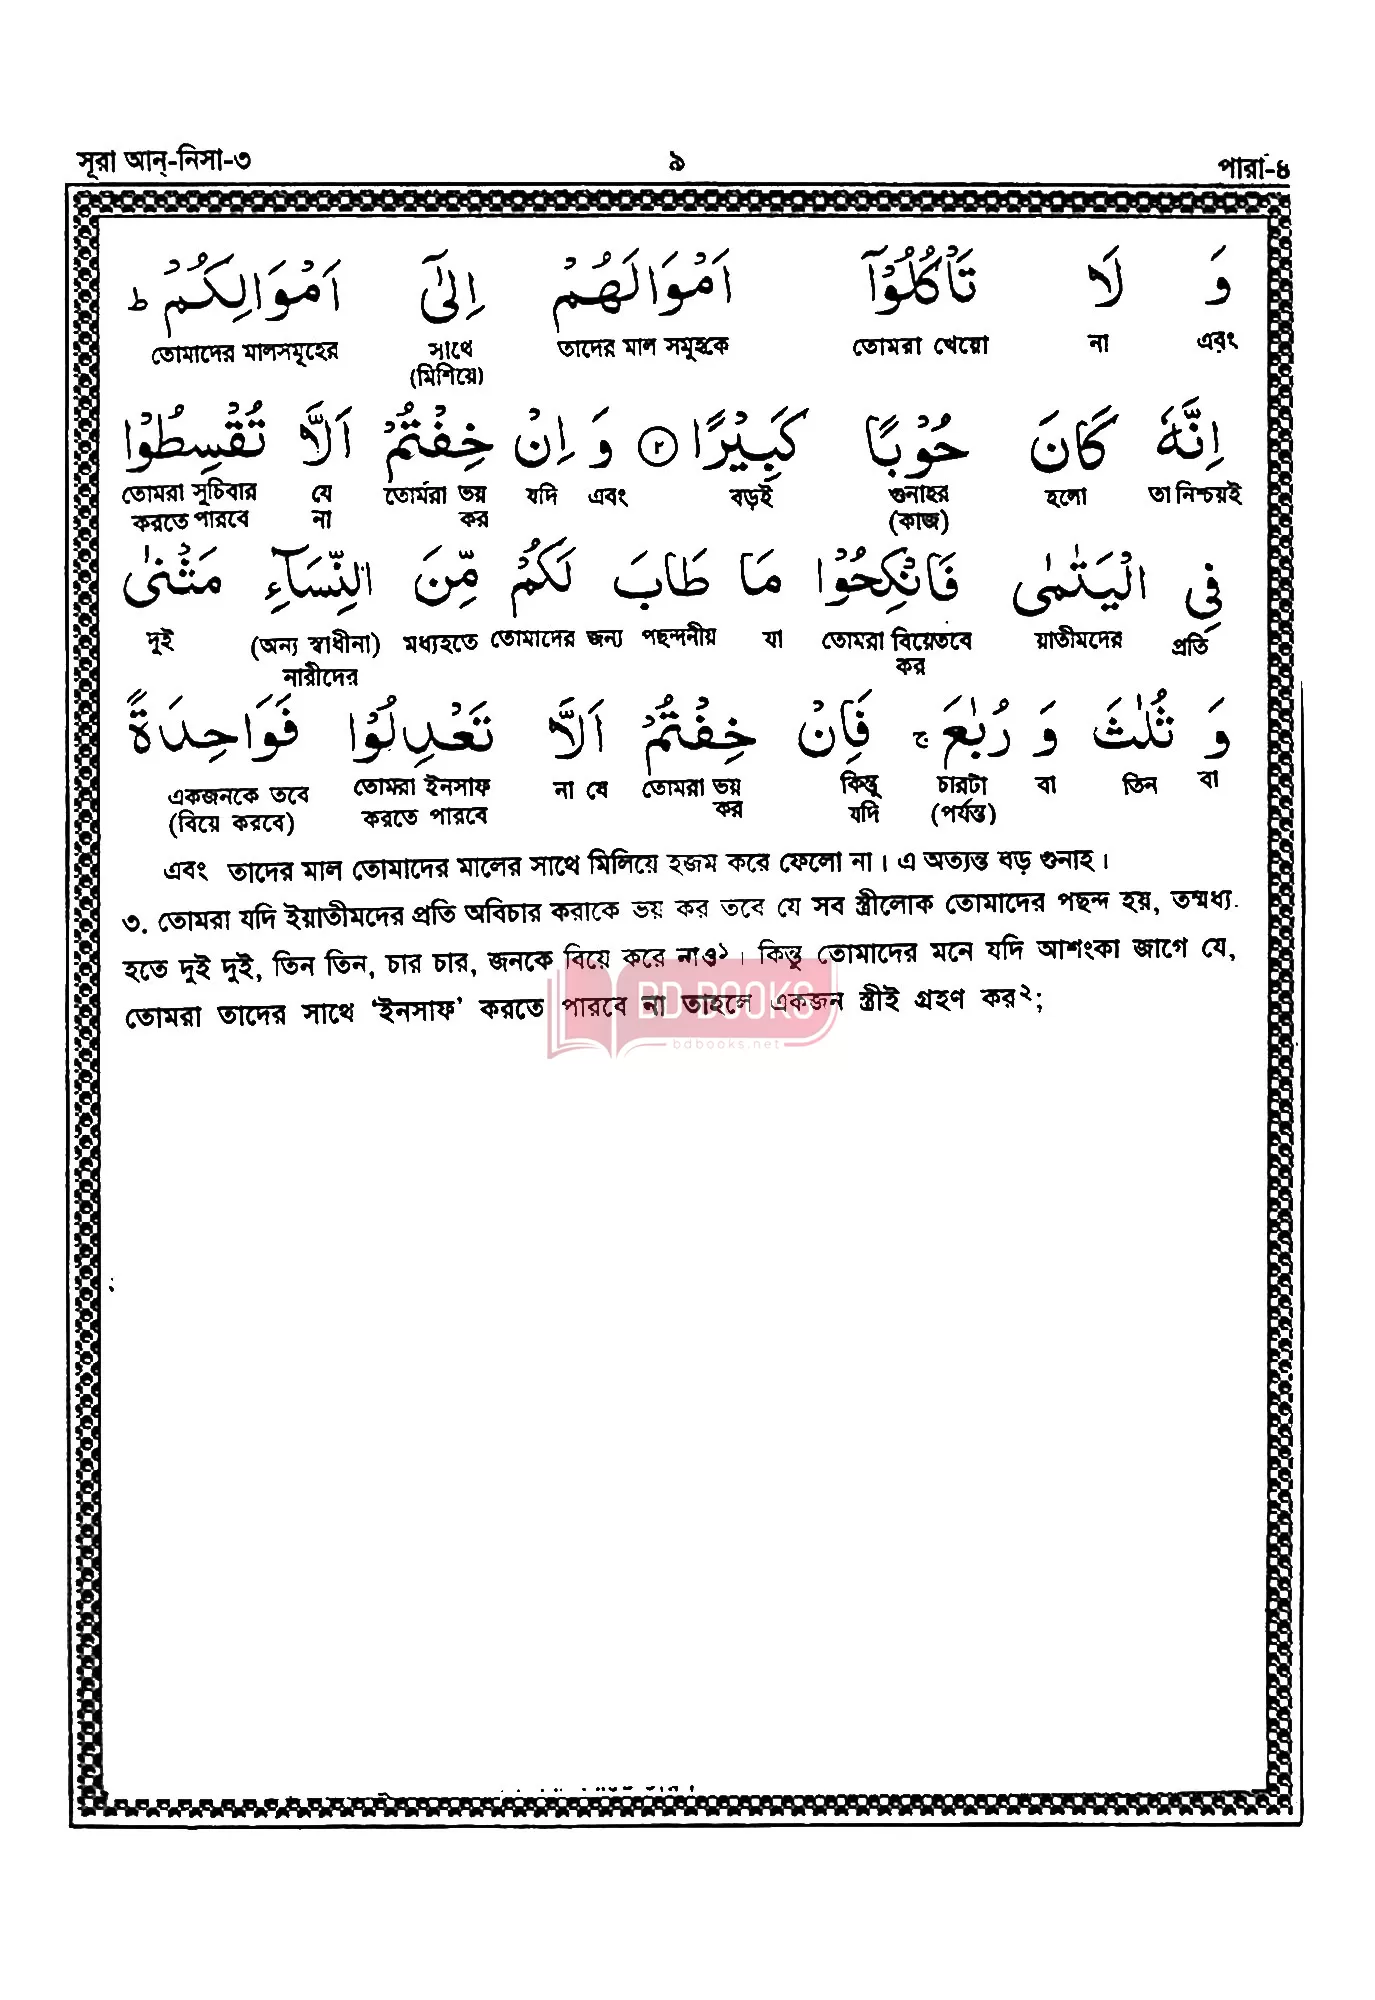 সূরা আন্-নিসা-৩ ৯ পারা-৪
وَ لَا تَاْكُلُوْۤا اَمْوَالَهُمْ اِلٰۤى اَمْوَالِكُمْ ؕ
এবং না তোমরা খেয়ো তাদের মাল সমূহকে সাথে তোমাদের মালসমূহের
(মিশিয়ে)
اِنَّهٗ كَانَ حُوْبًا كَبِيْرًا ۝۲ وَ اِنْ خِفْتُمْ اَلَّا تُقْسِطُوْا
তা নিশ্চয়ই হলো গুনাহর বড়ই এবং যদি তোমরা ভয় যে তোমরা সুচিবার
(কাজ) কর না করতে পারবে
فِي الْيَتٰمٰى فَانْكِحُوْا مَا طَابَ لَكُمْ مِّنَ النِّسَآءِ مَثْنٰى
প্রতি য়াতীমদের তোমরা বিয়েতবে যা পছন্দনীয় তোমাদের জন্য মধ্যহতে (অন্য স্বাধীনা) দুই
কর নারীদের
وَ ثُلٰثَ وَ رُبٰعَ ۚ فَاِنْ خِفْتُمْ اَلَّا تَعْدِلُوْا فَوَاحِدَةً
বা তিন বা চারটা কিন্তু তোমরা ভয় না যে তোমরা ইনসাফ একজনকে তবে
(পর্যন্ত) যদি কর করতে পারবে (বিয়ে করবে)
এবং তাদের মাল তোমাদের মালের সাথে মিলিয়ে হজম করে ফেলো না। এ অত্যন্ত বড় গুনাহ।
৩. তোমরা যদি ইয়াতীমদের প্রতি অবিচার করাকে ভয় কর তবে যে সব স্ত্রীলোক তোমাদের পছন্দ হয়, তম্মধ্য
হতে দুই দুই, তিন তিন, চার চার, জনকে বিয়ে করে নাও১। কিন্তু তোমাদের মনে যদি আশংকা জাগে যে,
তোমরা তাদের সাথে ‘ইনসাফ’ করতে পারবে না তাহলে একজন স্ত্রীই গ্রহণ কর২;
BD BOOKS
bdbooks.net